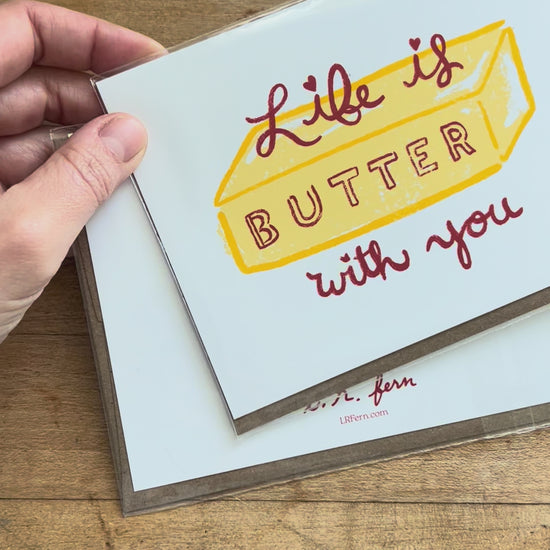 Life is
BUTTER
with you
fern
LRFern.com